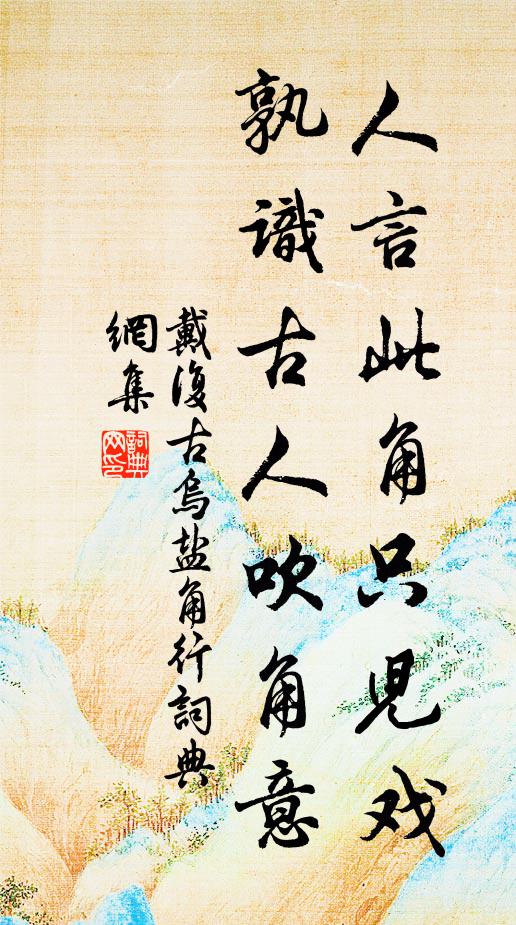 人言此角只児戏
孰識古人吹角意
戴復古烏盐角行詞典
網集
詞典
网印